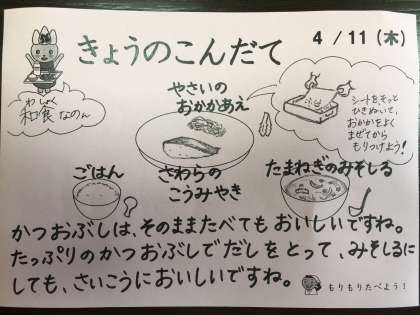 きょうのこんだて
4/11(木)
わしょく
和食なのん
やさいの
おかかあえ
シートをそっと
ひきぬいて、
おかかをよく
まぜてから
もりつけよう!
ごはん
さわらの
こうみやき
たまねぎのみそしる
かつおぶしは、そのままたべてもおいしいですね。
たっぷりのかつおぶしでだしをとって、みそしるに
しても、さいこうにおいしいですね。
もりもりたべよう!